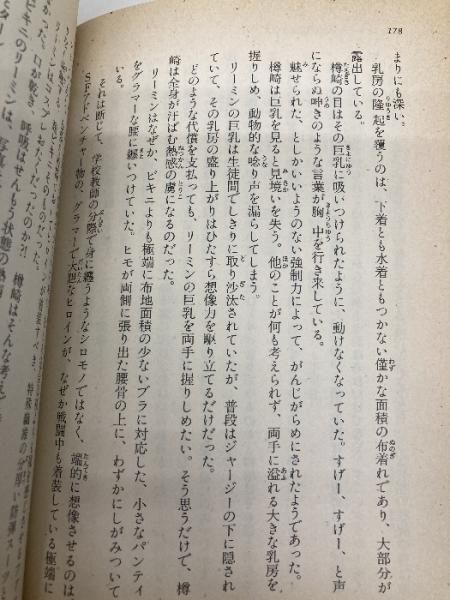 178
まりにも深い。
乳房の隆起を覆うのは、下着とも水着ともつかない僅かな面積の布着れであり、大部分が
露出している。
樽崎の目はその巨乳に吸いつけられたように、動けなくなっていた。すげー、すげー、と声
にならぬ呻きのような言葉が胸中を行き来している。
魅せられた、としかいいようのない強制力によって、がんじがらめにされたようであった。
樽崎は巨乳を見ると見境いを失う。他のことが何も考えられず、両手に溢れる大きな乳房を
握りしめ、動物的な唸り声を漏らしてしまう。
リーミンの巨乳は生徒間でしきりに取り沙汰されていたが、普段はジャージーの下に隠され
ていて、その乳房の盛り上がりはひたすら想像力を駆り立てるだけだった。
どのような代償を支払っても、リーミンの巨乳を両手に握りしめたい。そう思うだけで、樽
崎は全身が汗ばむ熱感の虜になるのだった。
リーミンはなぜか、ビキニよりも極端に布地面積の少ないブラに対応した、小さなパンティ
をグラマーな腰に纏いつけていた。ヒモが両側に張り出た腰骨の上に、わずかにしがみついて
いる。
それは断じて、学校教師の分際で身に纏うようなシロモノではなく、端的に想像させるのは、
SFアドベンチャー物の、グラマーで大胆なヒロインが、なぜか戦闘中も着装している極端に